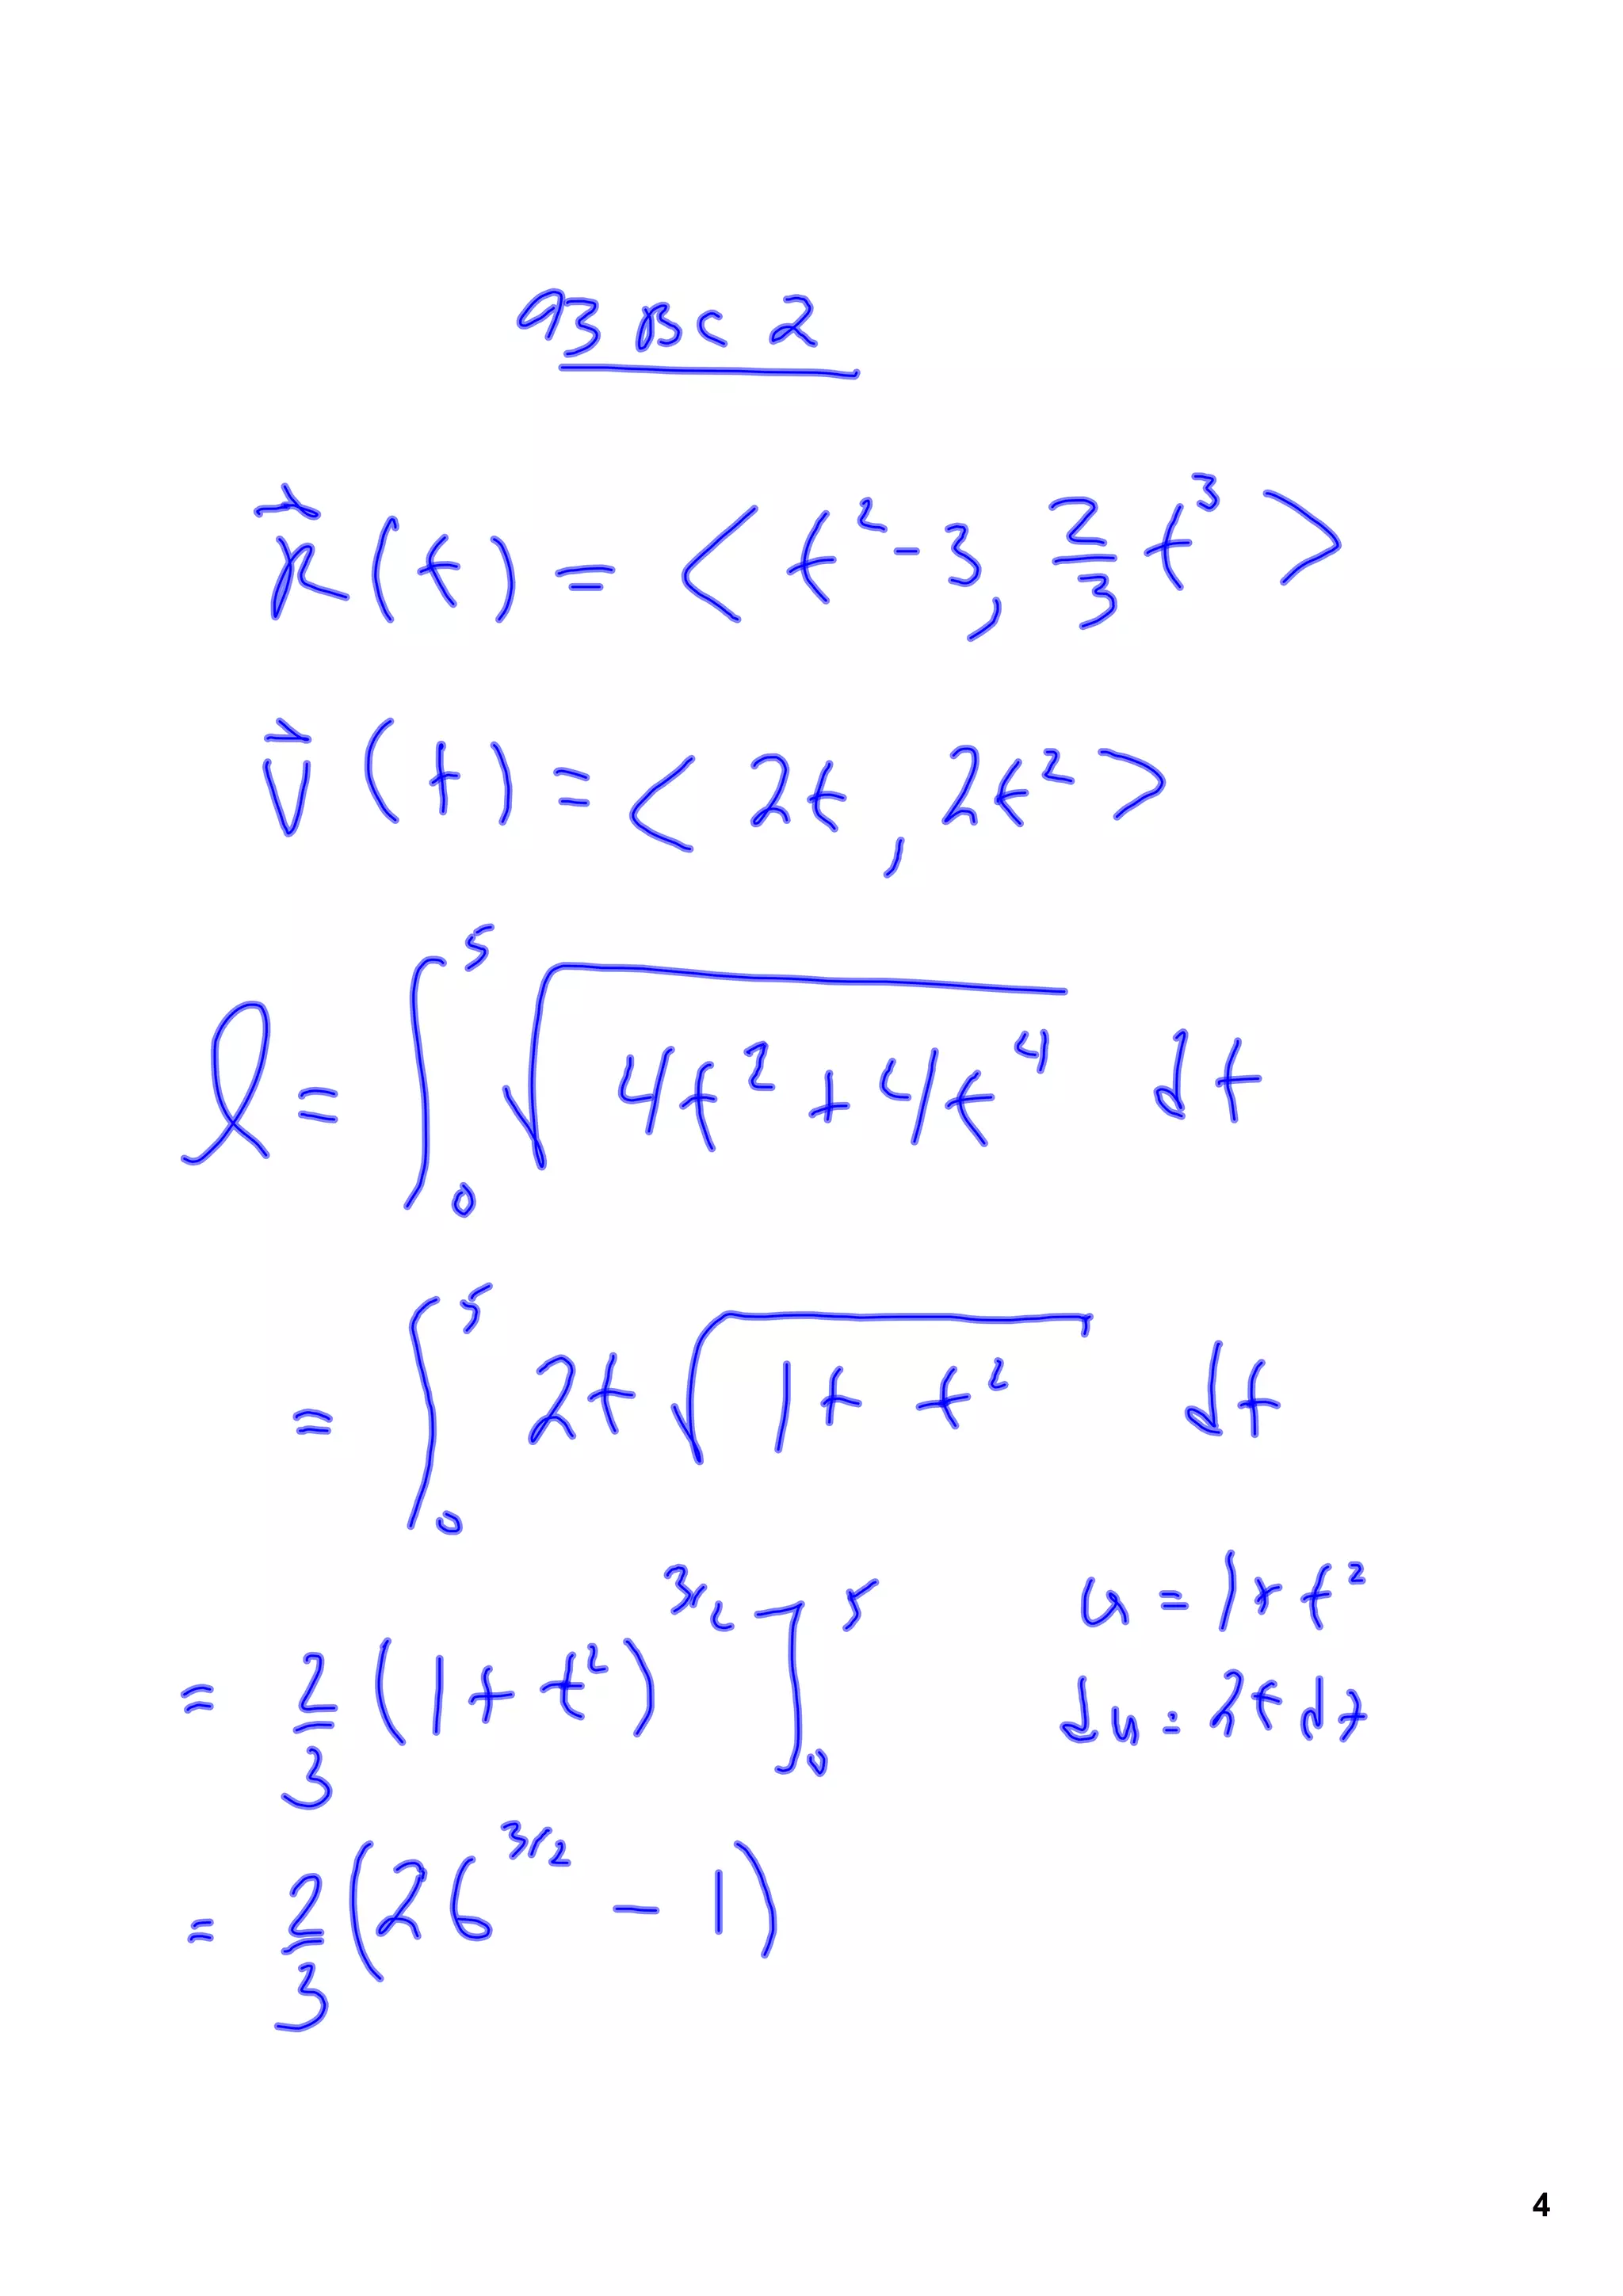 93 BC 2
r⃗(t) = < t² - 3, 2/3 t³ >
v⃗(t) = < 2t, 2t² >
l = ∫₀⁵ √(4t² + 4t⁴) dt
= ∫₀⁵ 2t √(1 + t²) dt
= 2/3 (1 + t²)^(3/2) ]₀⁵ u = 1 + t²
du = 2t dt
= 2/3 (26^(3/2) - 1)
4